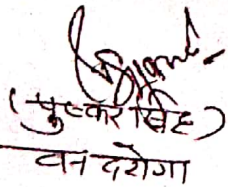 (पुष्कर सिंह)
वन दरोगा